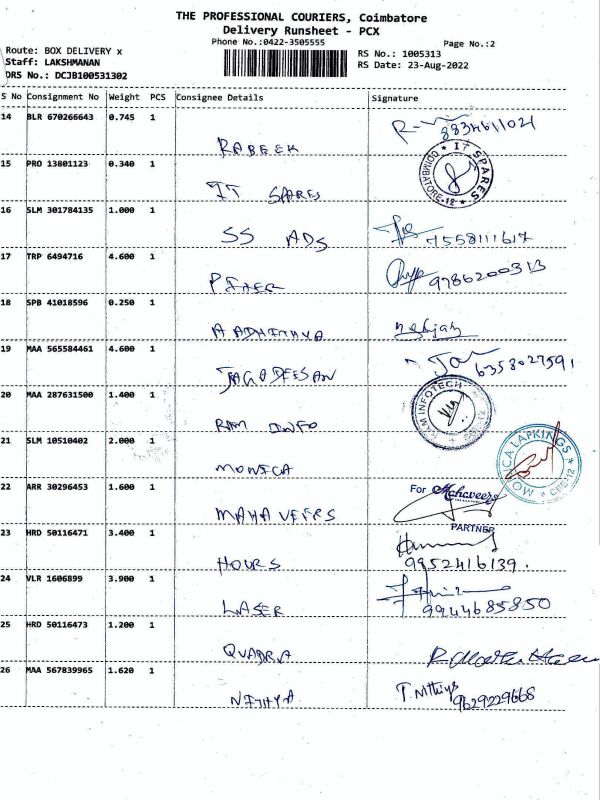 THE PROFESSIONAL COURIERS, Coimbatore
Delivery Runsheet - PCX
Phone No.:0422-3505555
Page No.:2
Route: BOX DELIVERY x
RS No.: 1005313
Staff: LAKSHMANAN
RS Date: 23-Aug-2022
DRS No.: DCJB100531302
S No Consignment No Weight PCS Consignee Details Signature
14 BLR 670266643 0.745 1
RABEEK 8834611021
15 PRO 13801123 0.340 1
IT SPARES
IT SPARES
COIMBATORE-12
16 SLM 301784135 1.000 1
SS ADS 7558111617
17 TRP 6494716 4.600 1
PITHER 9786200313
18 SPB 41018596 0.250 1
AADHITHYA
19 MAA 565584461 4.600 1
JAGADEESAN 6358027591
20 MAA 287631500 1.400 1
RAM INFO
RAM INFOTECH
21 SLM 10510402 2.000 1
MONICA
CA LAPKINGS
CBE-12
22 ARR 30296453 1.600 1
MAHAVEERS
For Mahaveers
PARTNER
23 HRD 50116471 3.400 1
HOURS 9952416139.
24 VLR 1606899 3.900 1
LASER 9944685850
25 HRD 50116473 1.200 1
QUADRA
26 MAA 567839965 1.620 1
NITHYA 9629229668